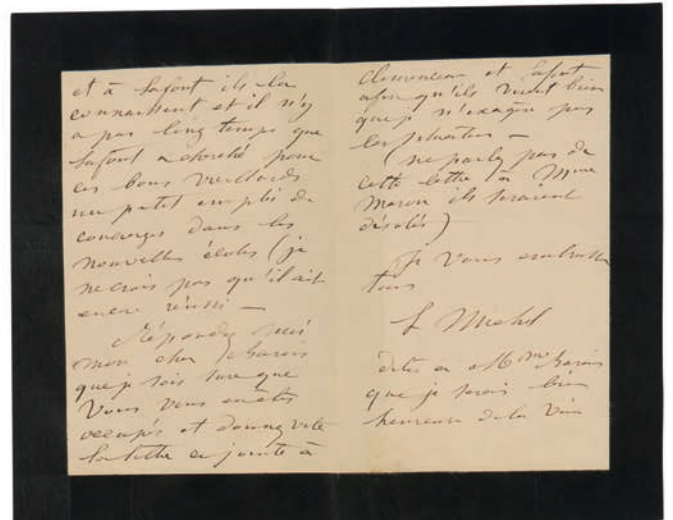 et à Lafont ils la
connaissent et il n'y
a pas longtemps que
Lafont a cherché pour
ces bons vieillards
un petit emploi de
concierges dans les
nouvelles écoles (je
ne crois pas qu'il ait
encore réussi —
Répondez moi
mon cher
que je sois sure que
vous vous en êtes
occupés et donnez vite
la lettre ci jointe à
Clemenceau et Lafont
afin qu'ils voient bien
que je n'exagère pas
la situation —
(ne parlez pas de
cette lettre à Mme
ils seraient
désolés)
Je vous embrasse
tous
L Michel
dites à Mme
que je serais bien
heureuse de la voir